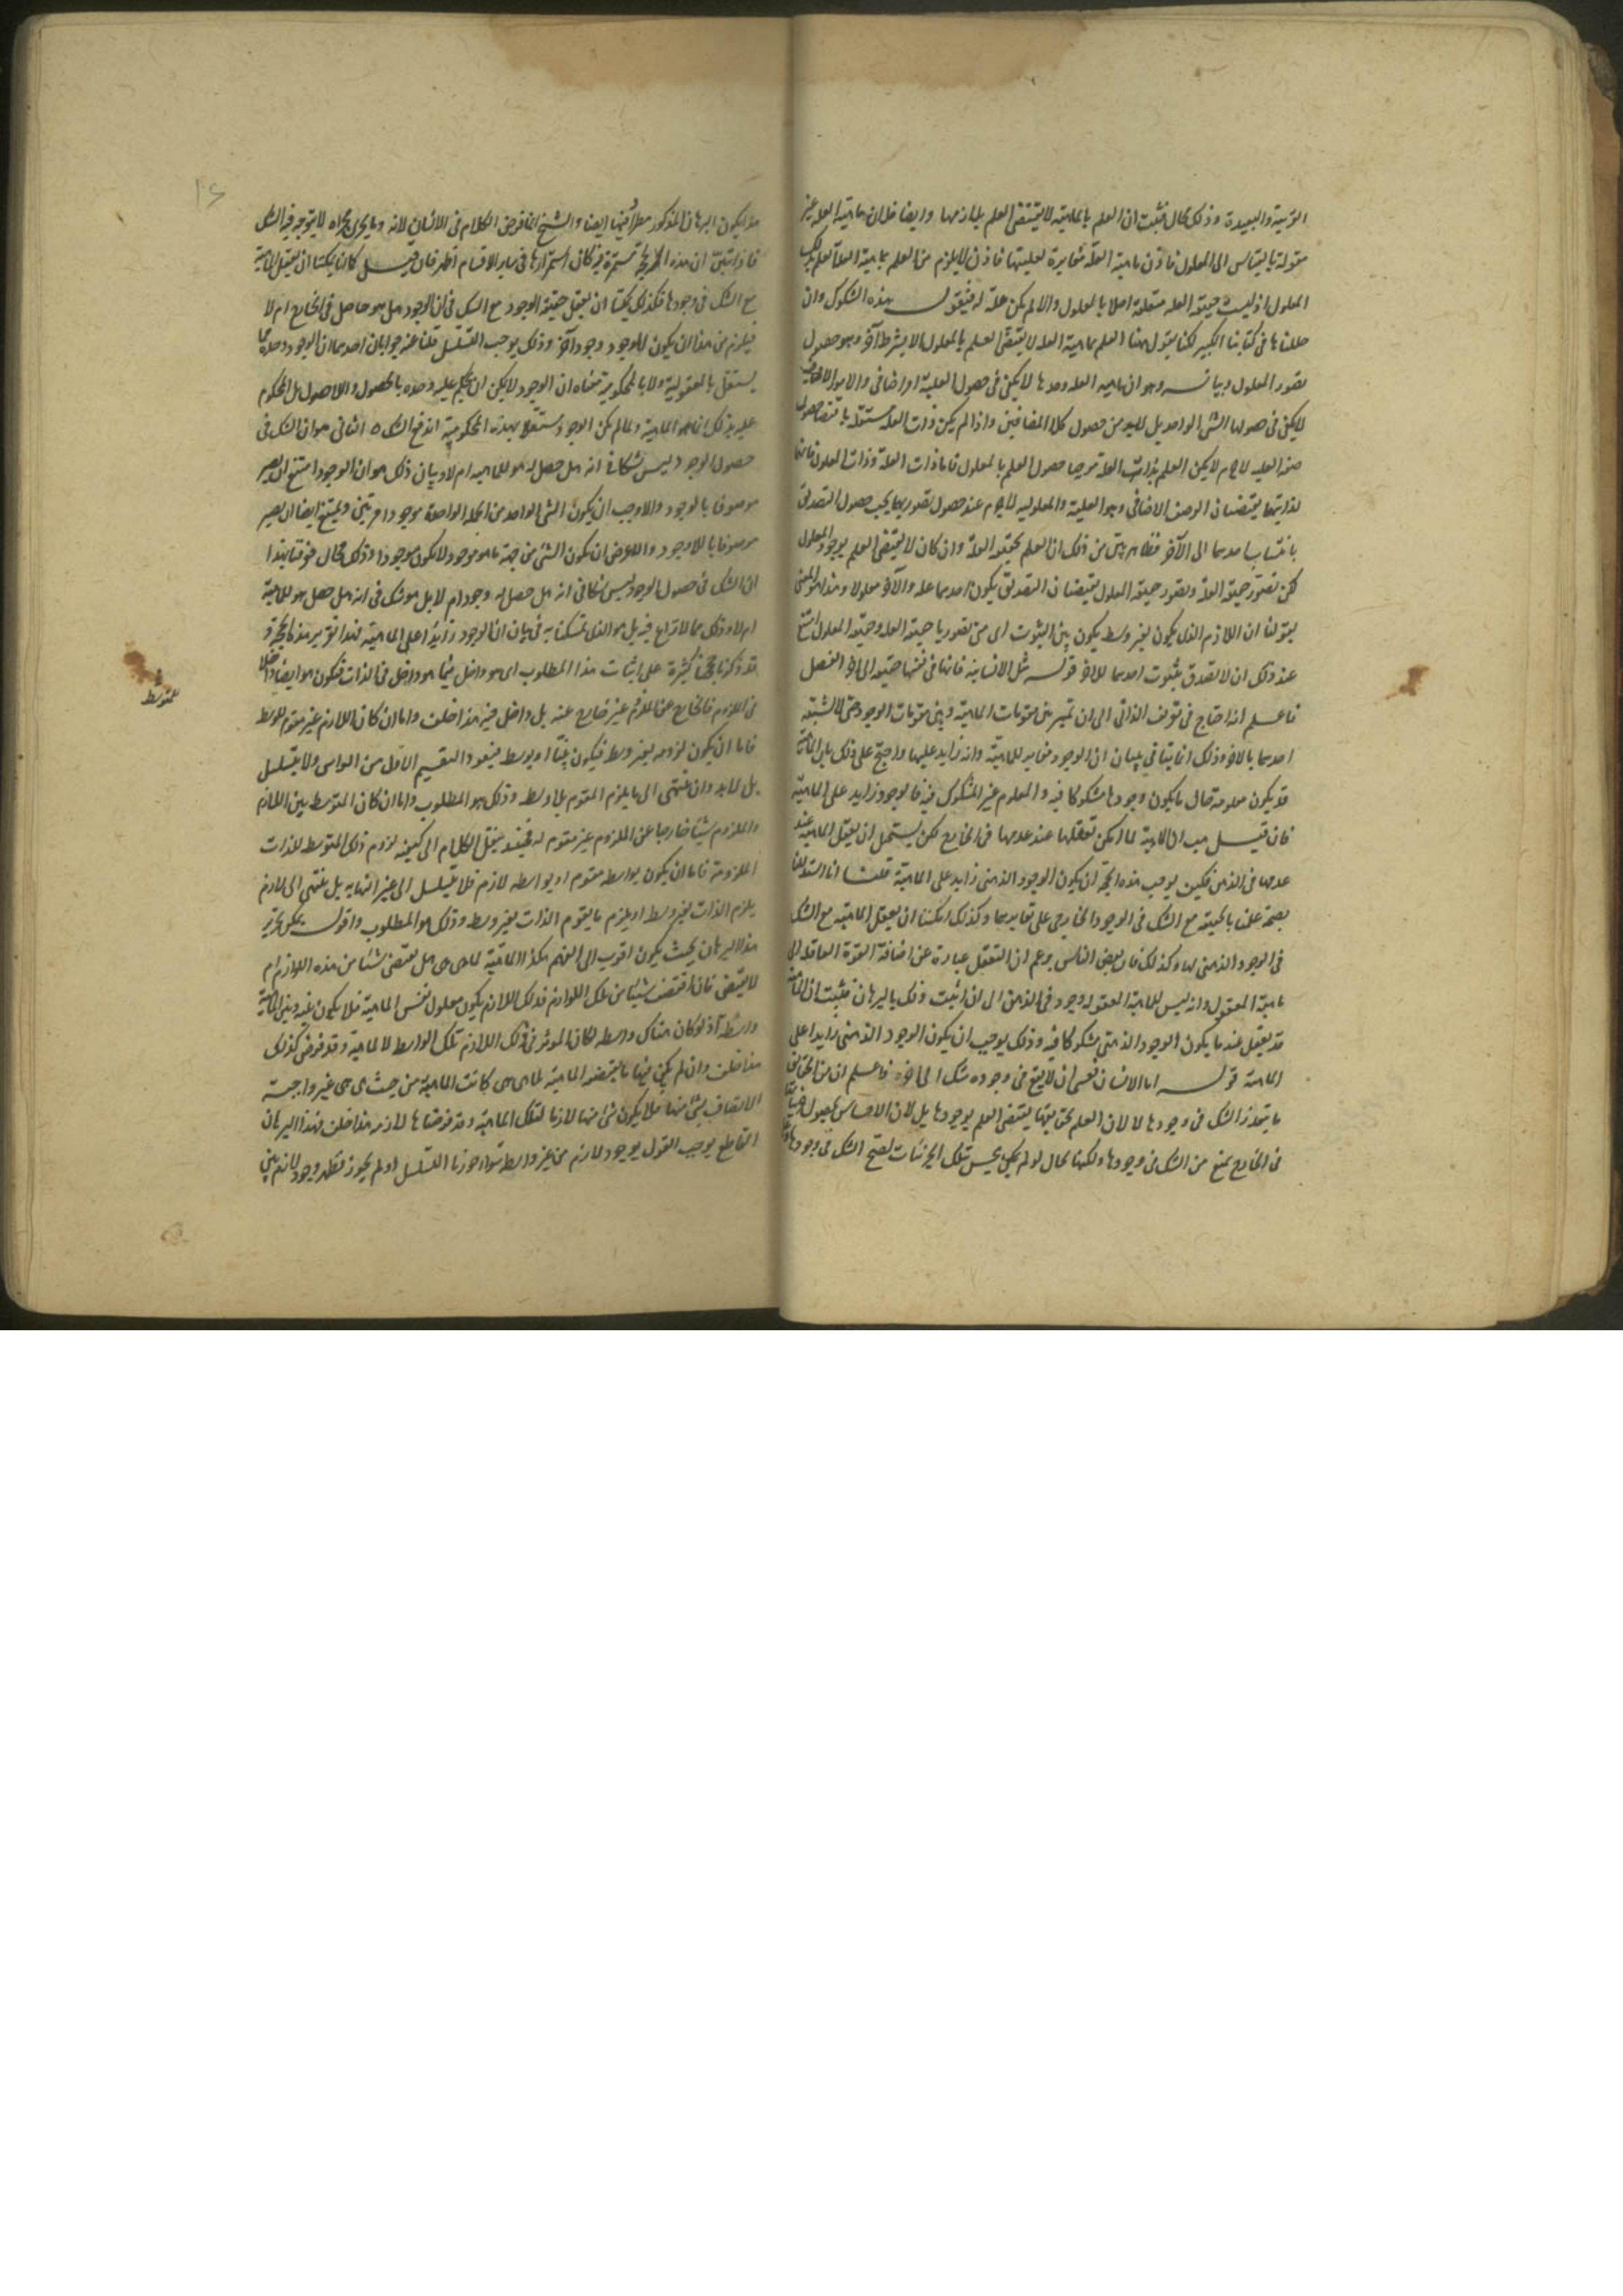 القريبة والبعيدة وذلك محال فثبت ان العلم بالماهية لا يقتضى العلم بلوازمها وايضا فلان ماهية العلة غير
مقولة بالقياس الى المعلول فاذن ماهية العلة مغايرة لعليتها فاذن لا يلزم من العلم بماهية العلة العلم بذلك
المعلول اذ ليست حقيقة العلة متعلقة اصلا بالمعلول والا لم يكن علة له فنقول هذه الشكوك وان
حللناها فى كتابنا الكبير لكنا نقول ههنا العلم بماهية العلة لا يقتضى العلم بالمعلول الا بشرط آخر وهو حصول
تصور المعلول وبيانه وهو ان ماهية العلة وحدها لا يكفى فى حصول العلية اذ امر اضافى والامور الاضافية
لا يكفى فى حصولها الشئ الواحد بل لا بد من حصول كلا المضافين واذا لم يكن ذات العلة مستقلة باقتضا حصول
صفة العلية لا جرم لا يكون العلم بذات العلة موجبا حصول العلم بالمعلول فاما ذات العلة وذات المعلول فانهما
لذاتيهما يقتضيان الوصف الاضافى وهو العلية والمعلولية لا جرم عند حصول تصوريهما يجب حصول التصديق
بانتساب احدهما الى الآخر فظاهر بين من ذلك ان العلم بحقيقة العلة وان كان لا يقتضى العلم بوجود المعلول
لكن تصور حقيقة العلة وتصور حقيقة المعلول يقتضيان التصديق بكون احدهما علة والآخر معلولا وهذا هو المعنى
بقولنا ان اللازم الذى يكون بغير وسط يكون بين الثبوت اى متى تصورنا حقيقة العلة وحقيقة المعلول امتنع
عند ذلك ان لا نصدق بثبوت احدهما للآخر قوله مثل الانسانية فانها فى نفسها حقيقة الى آخر الفصل
فاعلم انه احتاج فى تعريف الذاتى الى ان تميز بين مقومات الماهية وبين مقومات الوجود حتى لا يشتبه
احدهما بالآخر وذلك انما يتاتى ببيان ان الوجود مغاير للماهية وانه زايد عليها واحتج على ذلك بان الماهية
قد يكون معلومة حال ما يكون وجودها مشكوكا فيه والمعلوم غير المشكوك فيه فالوجود زايد على الماهية
فان قيل هب ان الماهية لما امكن تعقلها عند عدمها فى الخارج لكن يستحيل ان يعقل الماهية عند
عدمها فى الذهن فكيف يوجب هذه الحجة ان يكون الوجود الذهنى زايد على الماهية قلت انا استدللنا
بصحة علمنا بالحقيقة مع الشك فى الوجود الخارجى على تغايرهما وكذلك امكننا ان يعقل الماهية مع الشك
فى الوجود الذهنى لها وكذلك فان بعض الناس يزعم ان التعقل عبارة عن اضافة القوة العاقلة الى
ماهية المعقول وانه ليس للماهية المعقولة وجود فى الذهن الى ان اثبت ذلك بالبرهان فثبت ان الماهية
قد يعقل عند ما يكون الوجود الذهنى مشكوكا فيه وذلك يوجب ان يكون الوجود الذهنى زايدا على
الماهية قوله اما الانسان فعسى ان لا يقع فى وجوده شك الى آخره فاعلم ان من الحقايق
ما يتعذر الشك فى وجودها لا لان العلم بحقايقها يقتضى العلم بوجودها بل لان الاحساس
فى الخارج يمنع من الشك فى وجودها ولكنها بحال لو لم يكن يحس تلك الجزئيات لصح الشك فى وجودها
هذا يكون البرهان المذكور مطردا فيها ايضا والشيخ انما فرض الكلام فى الانسان لانه وما يجرى مجراه لا يتوجه فيه الشك
فاذا تبين ان هذه الحجة مستمرة فيه كان استمرارها فى ساير الاقسام اظهر فان قيل كما يمكننا ان نعقل الماهية
مع الشك فى وجودها فكذلك يمكننا ان نعقل حقيقة الوجود مع الشك فى ان الوجود هل هو حاصل فى الخارج ام لا
فيلزم من هذا ان يكون للوجود وجود آخر وذلك يوجب التسلسل قلنا عنه جوابان احدهما ان الوجود وحده
يستقل بالمعقولية ولا بالمحكومية معناه ان الوجود لا يمكن ان يحكم عليه وحده بالحصول واللاحصول بل المحكوم
عليه بذلك انما هو الماهية ولما لم يكن الوجود مستقلا بهذه المحكومية اندفع الشك ه الثانى هو ان الشك فى
حصول الوجود ليس شكا فى انه هل حصل له هو للماهية ام لا وبيان ذلك هو ان الوجود امتنع ان يصير
موصوفا بالوجود والا وجب ان يكون الشئ الواحد من الجهة الواحدة موجودا مرتين ويمتنع ايضا ان يصير
موصوفا باللاوجود والا لعرض ان يكون الشئ من جهة ما هو موجود لا يكون موجودا وذلك محال فوقنا بهذا
ان الشك فى حصول الوجود ليس شكا فى انه هل حصل له وجود ام لا بل هو شك فى انه هل حصل هو للماهية
ام لا وذلك مما لا نزاع فيه بل هو الذى تمسكنا به فى بيان ان الوجود زايد على الماهية فهذا تقرير هذه الحجة و
قد ذكرنا حججا كثيرة على اثبات هذا المطلوب اى هو داخل فيما هو داخل فى الذات فيكون هو ايضا داخلا
فى الملزوم فالخارج عن الملزوم غير خارج عنه بل داخل فيه هذا خلف واما ان كان اللازم غير مقوم للوسط
فاما ان يكون لزومه بغير وسط فيكون بينا او بوسط فيعود التقسيم الاول من الراس ولا يتسلسل
بل لا بد وان ينتهى الى ما يلزم المقوم بلا وسط وذلك هو المطلوب واما ان كان المتوسط بين اللازم
والملزوم شيئا خارجا عن الملزوم غير مقوم له فحينئذ ينتقل الكلام الى كيفية لزوم ذلك المتوسط للذات
الملزومة فاما ان يكون بواسطة مقوم او بواسطة لازم فلا يتسلسل الى غير النهاية بل ينتهى الى لازم
يلزم الذات بغير وسط او يلزم ما يقوم الذات بغير وسط وذلك هو المطلوب واقول يمكن تحرير
هذا البرهان بحيث يكون اقرب الى الفهم هكذا الماهية لما هى هى هل تقتضى شيئا من هذه اللوازم ام
لا يقتضى فان اقتضت شيئا من تلك اللوازم فذلك اللازم يكون معلول نفس الماهية فلا يكون بينه وبين الماهية
واسطة اذ لو كان هناك واسطة لكان المؤثر فى ذلك اللازم تلك الواسطة لا الماهية وقد فرض كذلك
هذا خلف وان لم يكن فيها ما يقتضيه الماهية لما هى هى كانت الماهية من حيث هى هى غير واجبة
الاتصاف بشئ منها فلا يكون شئ منها لازما لتلك الماهية وقد فرضناها لازمة هذا خلف فهذا البرهان
القاطع يوجب القول بوجود لازم من غير واسطة سواء جوزنا التسلسل او لم يجوز فظهر وجود لازم بين
للمتوسط